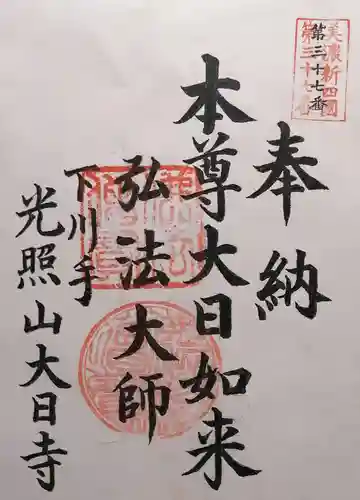 美濃新四国
第三十七番
奉納
本尊大日如来
弘法大師
下川手
光照山大日寺